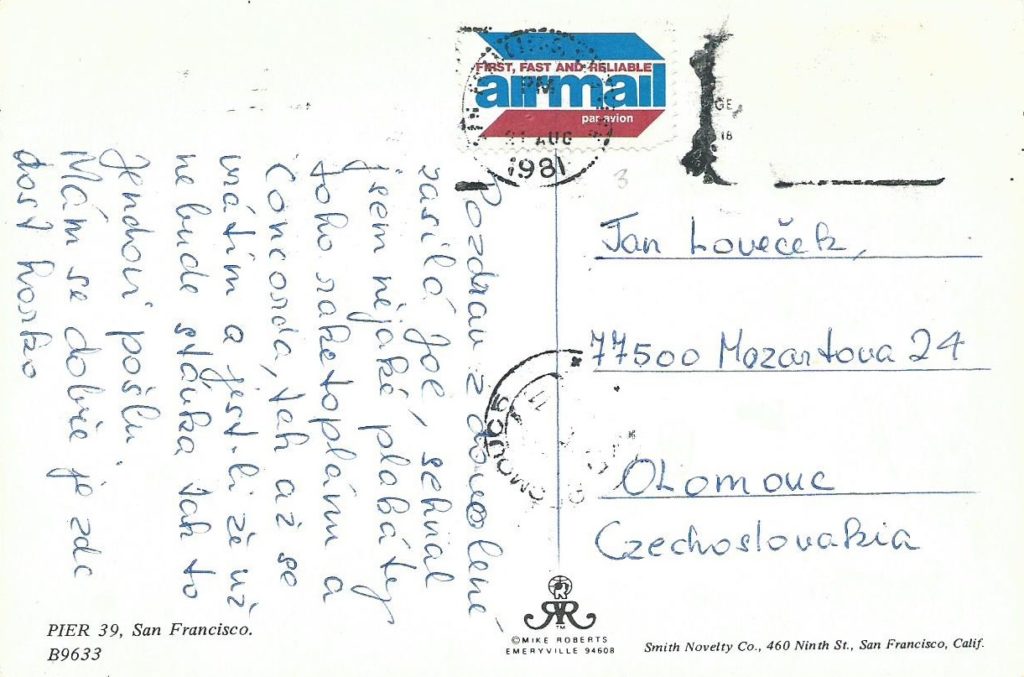 Pozdrav z dovolené
zasílá Joe, sehnal
jsem nějaké plakáty
toho raketoplánu a
Concorda, tak až se
vrátím a jest-li že už
nebude stávka tak to
Jendovi pošlu
Mám se dobře je zde
dost horko
FIRST, FAST AND RELIABLE
airmail
par avion
PM
21 AUG
1981
3
Jan Loveček,
77500 Mozartova 24
OLomouc
Czechoslovakia
OLOMOUC 5
11
PIER 39, San Francisco.
B9633
©MIKE ROBERTS
EMERYVILLE 94608
Smith Novelty Co., 460 Ninth St., San Francisco, Calif.